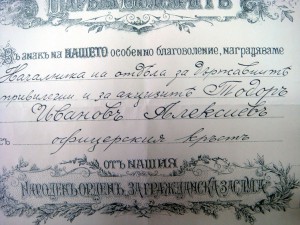 Въ знакъ на НАШЕТО особенно благоволение, награждаваме
Началника на отдѣла за Държавнитѣ
привилегии и за акцизитѣ Тодоръ
Ивановъ Алексиевъ
съ офицерския кръстъ
ОТЪ НАШИЯ
НАРОДЕНЪ ОРДЕНЪ ЗА ГРАЖДАНСКА ЗАСЛУГА